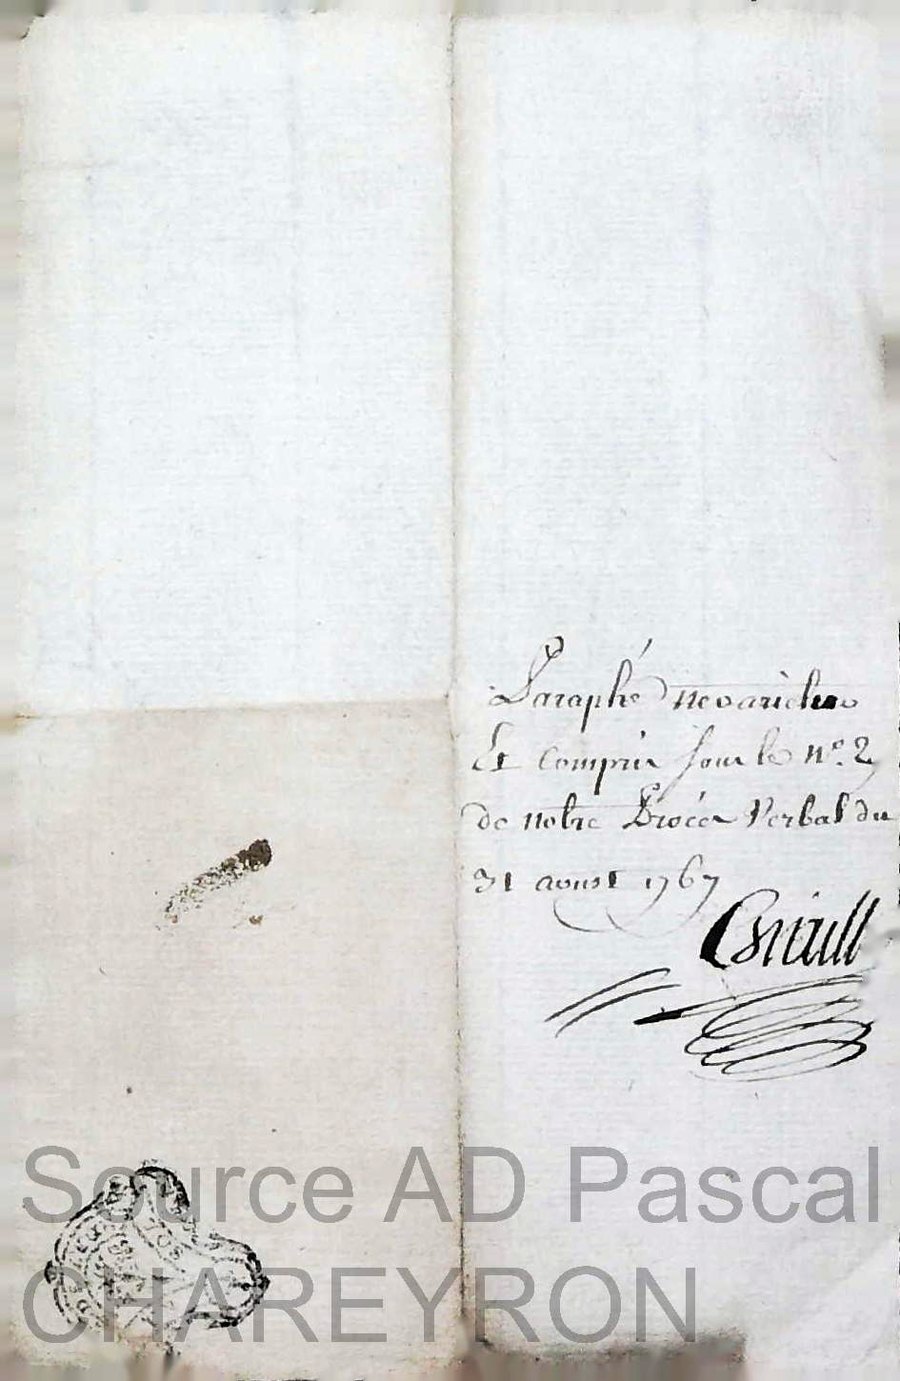 Paraphé nevarietur
Et Compris sous le n.º 2
de notre Procés Verbal du
31 aoust 1767
SOL
Source AD Pascal
CHAREYRON